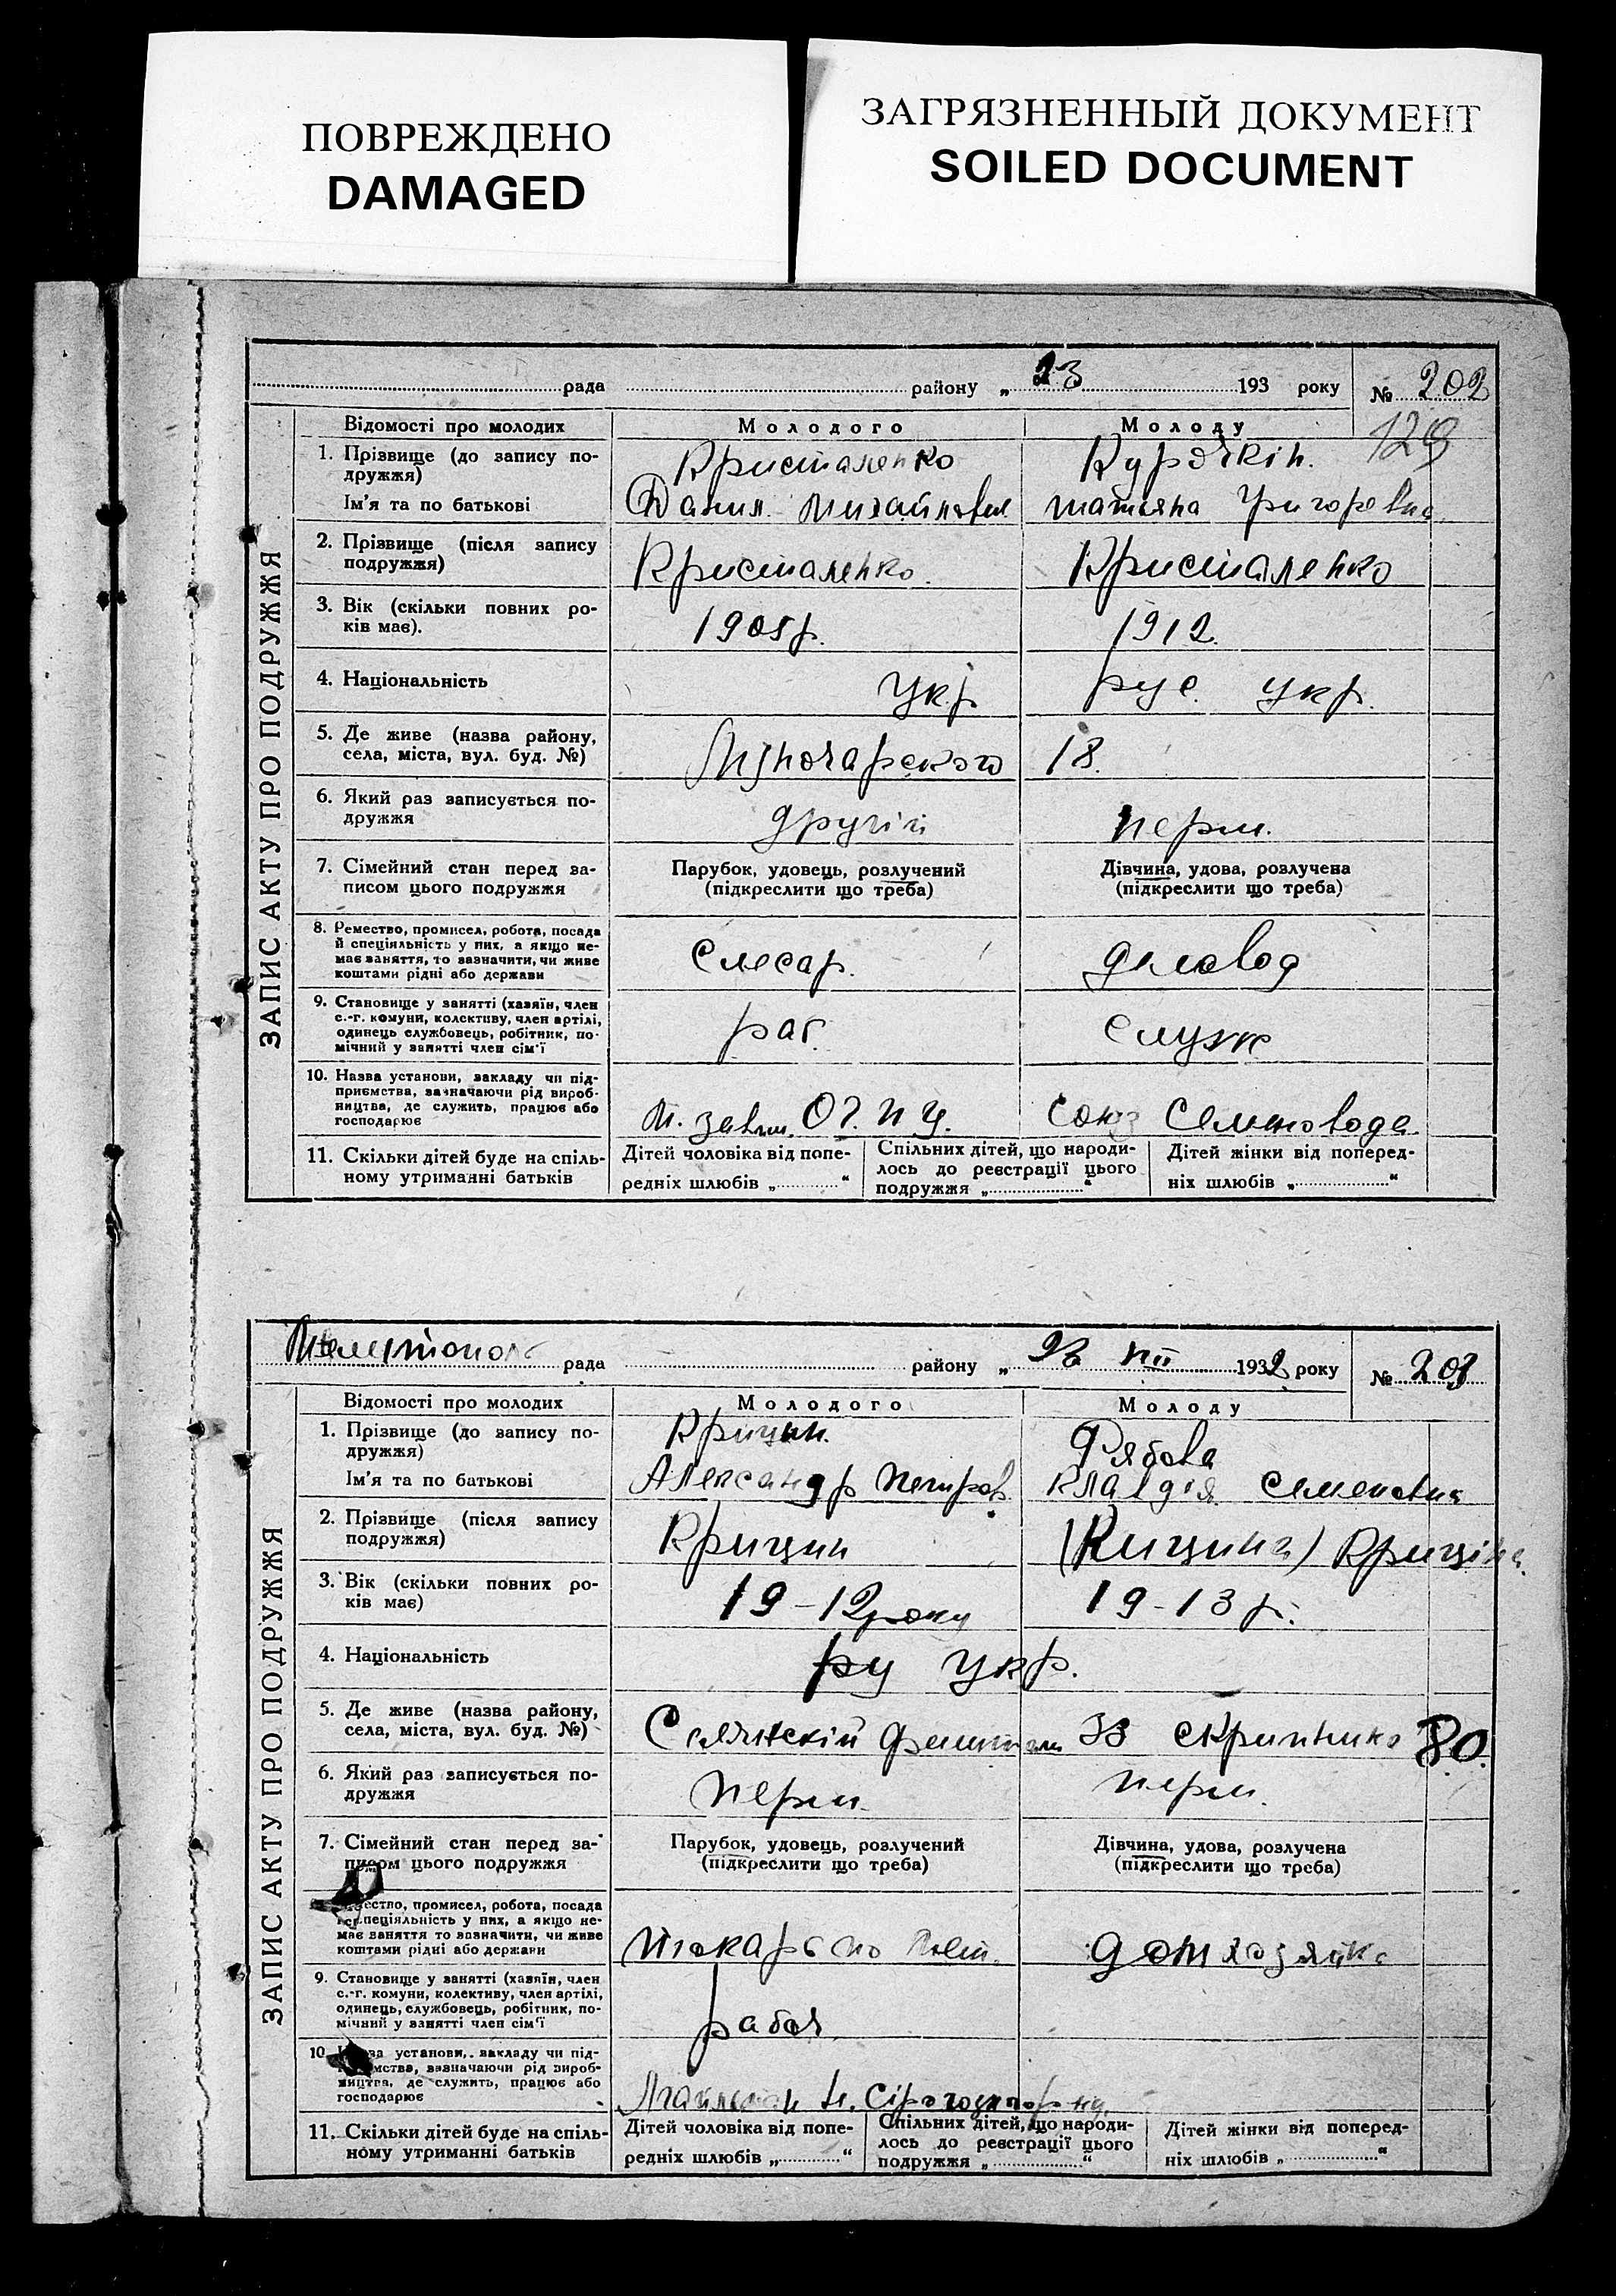 ПОВРЕЖДЕНО
DAMAGED
ЗАГРЯЗНЕННЫЙ ДОКУМЕНТ
SOILED DOCUMENT
рада району „ 23 193 року № 202
129
ЗАПИС АКТУ ПРО ПОДРУЖЖЯ
Відомості про молодих Молодого Молоду
1. Прізвище (до запису по- Кристаленко Курочкін.
дружжя)
Ім'я та по батькові Данил Михайлович татьяна Григоревна
2. Прізвище (після запису Кристаленко. Кристаленко
подружжя)
3. Вік (скільки повних ро- 1908р. 1912.
ків має).
4. Національність укр рус. укр.
5. Де живе (назва району, Луночарского 18.
села, міста, вул. буд. №)
6. Який раз записується по- другій перш.
дружжя
7. Сімейний стан перед за- Парубок, удовець, розлучений Дівчина, удова, розлучена
писом цього подружжя (підкреслити що треба) (підкреслити що треба)
8. Ремество, промисел, робота, посада
й спеціяльність у них, а якщо не- слесар. деловод
має заняття, то зазначити, чи живе
коштами рідні або держави
9. Становище у занятті (хазяїн, член
с.-г. комуни, колективу, член артілі, раб. служ
одинець службовець, робітник, по-
мічний у занятті член сім'ї
10. Назва установи, закладу чи під-
приємства, зазначаючи рід вироб-
ництва, де служить, працює або союз
господарює
11. Скільки дітей буде на спіль- Дітей чоловіка від попе- Спільних дітей, що народи- Дітей жінки від поперед-
ному утриманні батьків редніх шлюбів „ “ лось до реєстрації цього ніх шлюбів „ “
подружжя „ “
рада району „ 26 VII 1932 року № 203
ЗАПИС АКТУ ПРО ПОДРУЖЖЯ
Відомості про молодих Молодого Молоду
1. Прізвище (до запису по- Крицин. Рябова
дружжя)
Ім'я та по батькові Александр Петров. Клавдія Семеновна
2. Прізвище (після запису Крицин (Кицина) Крицина
подружжя)
3. Вік (скільки повних ро- 19-12року 19-13р.
ків має)
4. Національність ру укр.
5. Де живе (назва району, 33 80.
села, міста, вул. буд. №)
6. Який раз записується по- перш. перш.
дружжя
7. Сімейний стан перед за- Парубок, удовець, розлучений Дівчина, удова, розлучена
писом цього подружжя (підкреслити що треба) (підкреслити що треба)
промисел, робота, посада
спеціяльність у них, а якщо не- токарь по домхозяйка
має заняття то зазначити, чи живе
коштами рідні або держави
9. Становище у занятті (хазяїн, член
с.-г. комуни, колективу, член артілі, рабоч.
одинець, службовець, робітник, по-
мічний у занятті член сім'ї
10. установи, закладу чи під-
зазначаючи рід вироб-
ництва, де служить, працює або
господарює
11. Скільки дітей буде на спіль- Дітей чоловіка від попе- Спільних дітей, що народи- Дітей жінки від поперед-
ному утриманні батьків редніх шлюбів „ “ лось до реєстрації цього ніх шлюбів „ “
подружжя „ “